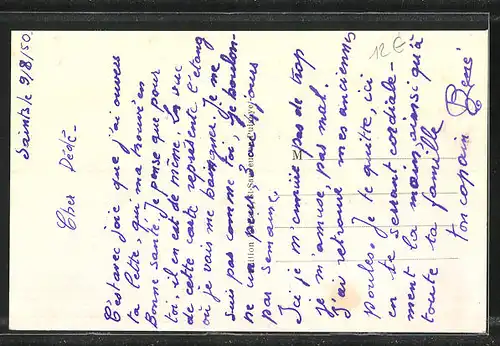 Saints le 9/8/50.
Cher Dédé -
C'est avec joie que j'ai ouvers
ta lettre, qui m'a trouvé en
Bonne santé. Je pense que pour
toi, il en est de même. La vue
de cette carte représente l'étang
où je vais me baigner. Je ne
suis pas comme toi, je
ne pas jours
par semaine.
Ici je m'ennuie pas de trop
je m'amuse pas mal.
J'ai retrouvé mes anciennes
poules. Je te quitte, ici
en te serrant cordiale-
ment la main, ainsi qu'à
toute ta famille
ton copain René
12 €